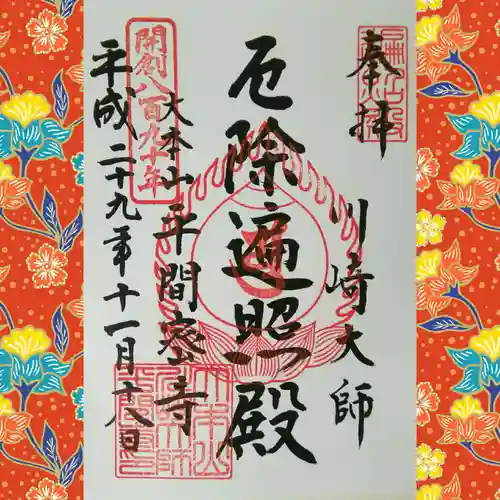 奉拝
川崎大師
厄除遍照殿
大本山平間寺
開創八百九十年
平成二十九年十一月十八日